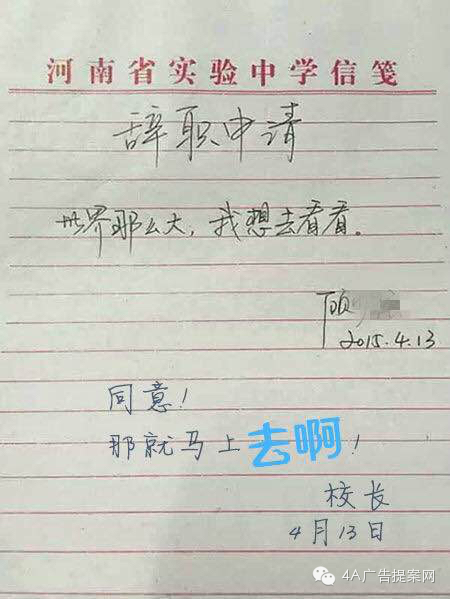 河南省实验中学信笺
辞职申请
世界那么大，我想去看看。
顾
2015.4.13
同意！
那就马上去啊！
校长
4月13日
4A广告提案网